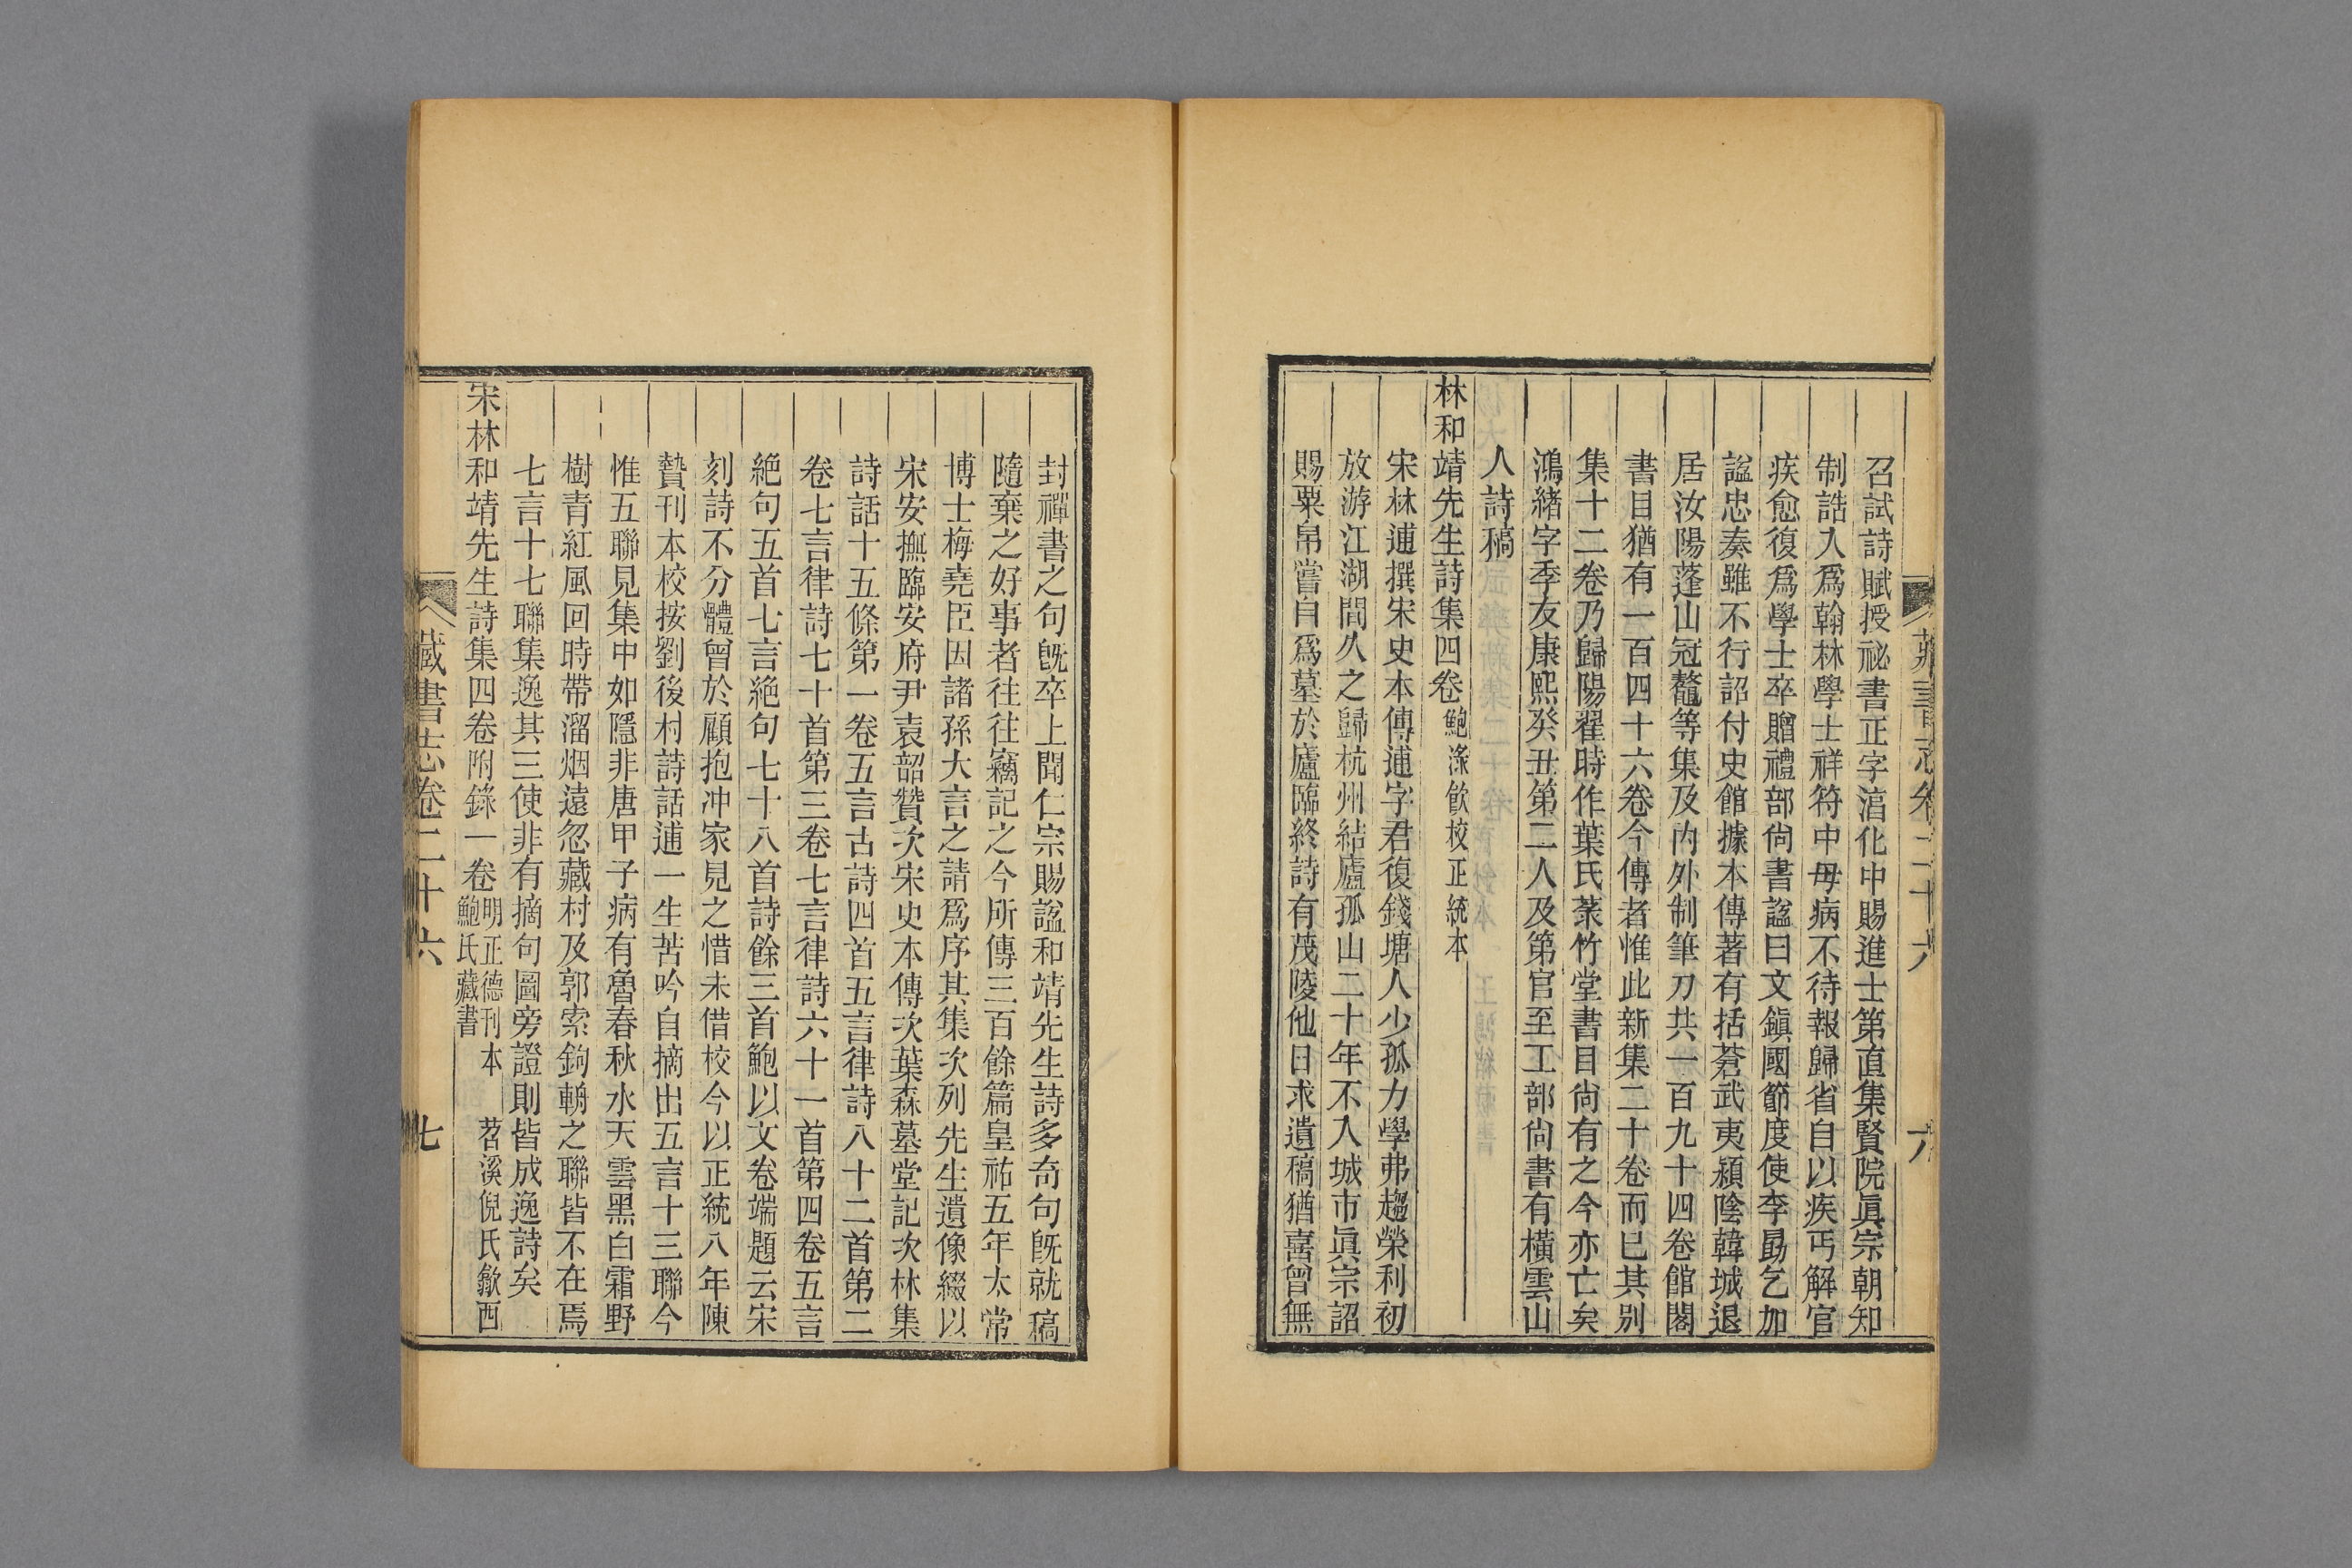 召試詩賦授祕書正字淳化中賜進士第直集賢院眞宗朝知
制誥入爲翰林學士祥符中毋病不待報歸省自以疾丐解官
疾愈復爲學士卒贈禮部尙書諡曰文鎭國節度使李勗乞加
諡忠奏雖不行詔付史館據本傳著有括蒼武夷潁陰韓城退
居汝陽蓬山冠鼇等集及內外制筆刀共一百九十四卷館閣
書目猶有一百四十六卷今傳者惟此新集二十卷而已其別
集十二卷乃歸陽翟時作葉氏菉竹堂書目尙有之今亦亡矣
鴻緒字季友康熙癸丑第二人及第官至工部尙書有橫雲山
人詩稿
林和靖先生詩集四卷 鮑淥飮校正統本
宋林逋撰宋史本傳逋字君復錢塘人少孤力學弗趨榮利初
放游江湖間久之歸杭州結廬孤山二十年不入城市眞宗詔
賜粟帛嘗自爲墓於廬臨終詩有茂陵他日求遺稿猶喜曾無
藏書志卷二十六 六
封禪書之句旣卒上聞仁宗賜諡和靖先生詩多奇句旣就稿
隨棄之好事者往往竊記之今所傳三百餘篇皇祐五年太常
博士梅堯臣因諸孫大言之請爲序其集次列先生遺像綴以
宋安撫臨安府尹袁韶贊次宋史本傳次葉森墓堂記次林集
詩話十五條第一卷五言古詩四首五言律詩八十二首第二
卷七言律詩七十首第三卷七言律詩六十一首第四卷五言
絕句五首七言絕句七十八首詩餘三首鮑以文卷端題云宋
刻詩不分體曾於顧抱冲家見之惜未借校今以正統八年陳
贄刊本校按劉後村詩話逋一生苦吟自摘出五言十三聯今
惟五聯見集中如隱非唐甲子病有魯春秋水天雲黑白霜野
樹靑紅風回時帶溜烟遠忽藏村及郭索鉤輈之聯皆不在焉
七言十七聯集逸其三使非有摘句圖旁證則皆成逸詩矣
宋林和靖先生詩集四卷附錄一卷 明正德刊本 苕溪倪氏歙西
鮑氏藏書
藏書志卷二十六 七